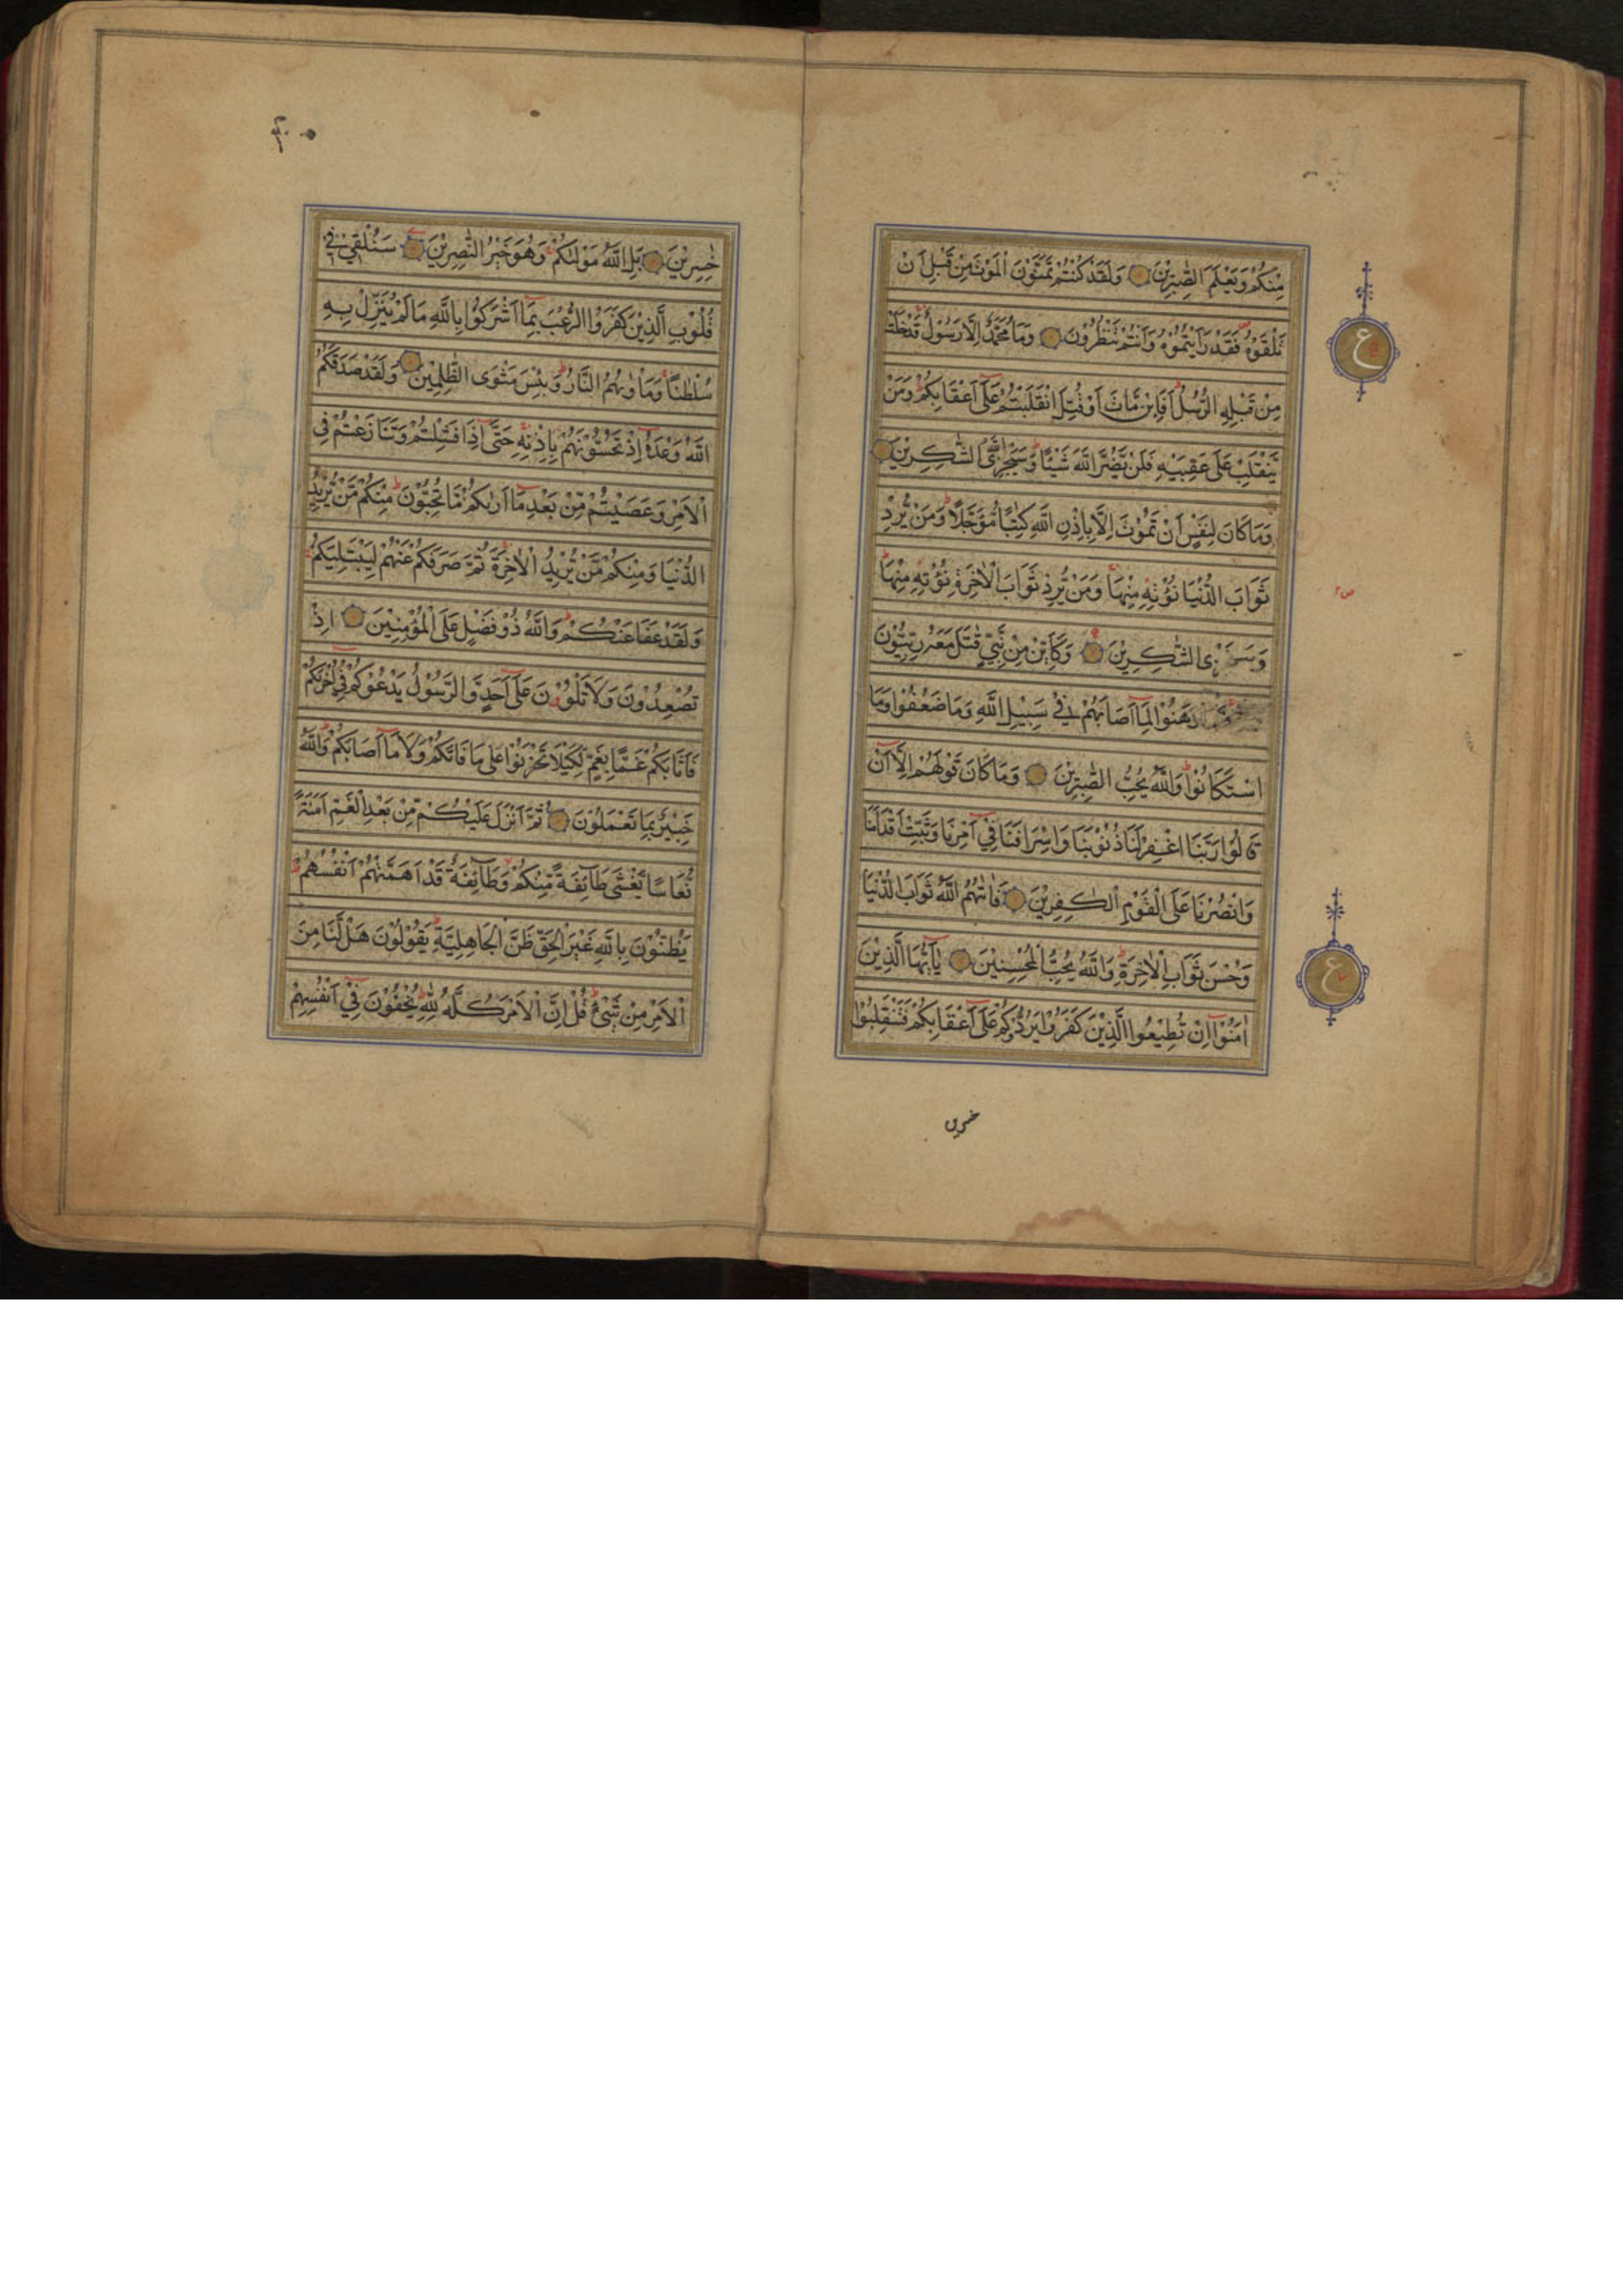 مِنْكُمْ وَيَعْلَمَ الصّٰبِرِيْنَ وَلَقَدْ كُنْتُمْ تَمَنَّوْنَ الْمَوْتَ مِنْ قَبْلِ اَنْ
تَلْقَوْهُ فَقَدْ رَاَيْتُمُوْهُ وَاَنْتُمْ تَنْظُرُوْنَ وَمَا مُحَمَّدٌ اِلَّا رَسُوْلٌ قَدْ خَلَتْ
مِنْ قَبْلِهِ الرُّسُلُ اَفَا۟ئِنْ مَّاتَ اَوْ قُتِلَ انْقَلَبْتُمْ عَلٰٓى اَعْقَابِكُمْ وَمَنْ
يَّنْقَلِبْ عَلٰى عَقِبَيْهِ فَلَنْ يَّضُرَّ اللّٰهَ شَيْئًا وَسَيَجْزِى اللّٰهُ الشّٰكِرِيْنَ
وَمَا كَانَ لِنَفْسٍ اَنْ تَمُوْتَ اِلَّا بِاِذْنِ اللّٰهِ كِتٰبًا مُّؤَجَّلًا وَمَنْ يُّرِدْ
ثَوَابَ الدُّنْيَا نُؤْتِهٖ مِنْهَا وَمَنْ يُّرِدْ ثَوَابَ الْاٰخِرَةِ نُؤْتِهٖ مِنْهَا
وَسَنَجْزِى الشّٰكِرِيْنَ وَكَاَيِّنْ مِنْ نَّبِيٍّ قٰتَلَ مَعَهٗ رِبِّيُّوْنَ
وَهَنُوْا لِمَآ اَصَابَهُمْ فِيْ سَبِيْلِ اللّٰهِ وَمَا ضَعُفُوْا وَمَا
اسْتَكَانُوْا وَاللّٰهُ يُحِبُّ الصّٰبِرِيْنَ وَمَا كَانَ قَوْلَهُمْ اِلَّآ اَنْ
قَالُوْا رَبَّنَا اغْفِرْ لَنَا ذُنُوْبَنَا وَاِسْرَافَنَا فِيْٓ اَمْرِنَا وَثَبِّتْ اَقْدَامَنَا
وَانْصُرْنَا عَلَى الْقَوْمِ الْكٰفِرِيْنَ فَاٰتٰىهُمُ اللّٰهُ ثَوَابَ الدُّنْيَا
وَحُسْنَ ثَوَابِ الْاٰخِرَةِ وَاللّٰهُ يُحِبُّ الْمُحْسِنِيْنَ يٰٓاَيُّهَا الَّذِيْنَ
اٰمَنُوْٓا اِنْ تُطِيْعُوا الَّذِيْنَ كَفَرُوْا يَرُدُّوْكُمْ عَلٰٓى اَعْقَابِكُمْ فَتَنْقَلِبُوْا
خسرين
ع
ع
خٰسِرِيْنَ بَلِ اللّٰهُ مَوْلٰىكُمْ وَهُوَ خَيْرُ النّٰصِرِيْنَ سَنُلْقِيْ فِيْ
قُلُوْبِ الَّذِيْنَ كَفَرُوا الرُّعْبَ بِمَآ اَشْرَكُوْا بِاللّٰهِ مَا لَمْ يُنَزِّلْ بِهٖ
سُلْطٰنًا وَمَاْوٰىهُمُ النَّارُ وَبِئْسَ مَثْوَى الظّٰلِمِيْنَ وَلَقَدْ صَدَقَكُمُ
اللّٰهُ وَعْدَهٗٓ اِذْ تَحُسُّوْنَهُمْ بِاِذْنِهٖ حَتّٰٓى اِذَا فَشِلْتُمْ وَتَنَازَعْتُمْ فِي
الْاَمْرِ وَعَصَيْتُمْ مِّنْ بَعْدِ مَآ اَرٰىكُمْ مَّا تُحِبُّوْنَ مِنْكُمْ مَّنْ يُّرِيْدُ
الدُّنْيَا وَمِنْكُمْ مَّنْ يُّرِيْدُ الْاٰخِرَةَ ثُمَّ صَرَفَكُمْ عَنْهُمْ لِيَبْتَلِيَكُمْ
وَلَقَدْ عَفَا عَنْكُمْ وَاللّٰهُ ذُوْ فَضْلٍ عَلَى الْمُؤْمِنِيْنَ اِذْ
تُصْعِدُوْنَ وَلَا تَلْوٗنَ عَلٰٓى اَحَدٍ وَّالرَّسُوْلُ يَدْعُوْكُمْ فِيْٓ اُخْرٰىكُمْ
فَاَثَابَكُمْ غَمًّا بِغَمٍّ لِّكَيْلَا تَحْزَنُوْا عَلٰى مَا فَاتَكُمْ وَلَا مَآ اَصَابَكُمْ وَاللّٰهُ
خَبِيْرٌ بِمَا تَعْمَلُوْنَ ثُمَّ اَنْزَلَ عَلَيْكُمْ مِّنْ بَعْدِ الْغَمِّ اَمَنَةً
نُّعَاسًا يَّغْشٰى طَآئِفَةً مِّنْكُمْ وَطَآئِفَةٌ قَدْ اَهَمَّتْهُمْ اَنْفُسُهُمْ
يَظُنُّوْنَ بِاللّٰهِ غَيْرَ الْحَقِّ ظَنَّ الْجَاهِلِيَّةِ يَقُوْلُوْنَ هَلْ لَّنَا مِنَ
الْاَمْرِ مِنْ شَيْءٍ قُلْ اِنَّ الْاَمْرَ كُلَّهٗ لِلّٰهِ يُخْفُوْنَ فِيْٓ اَنْفُسِهِمْ